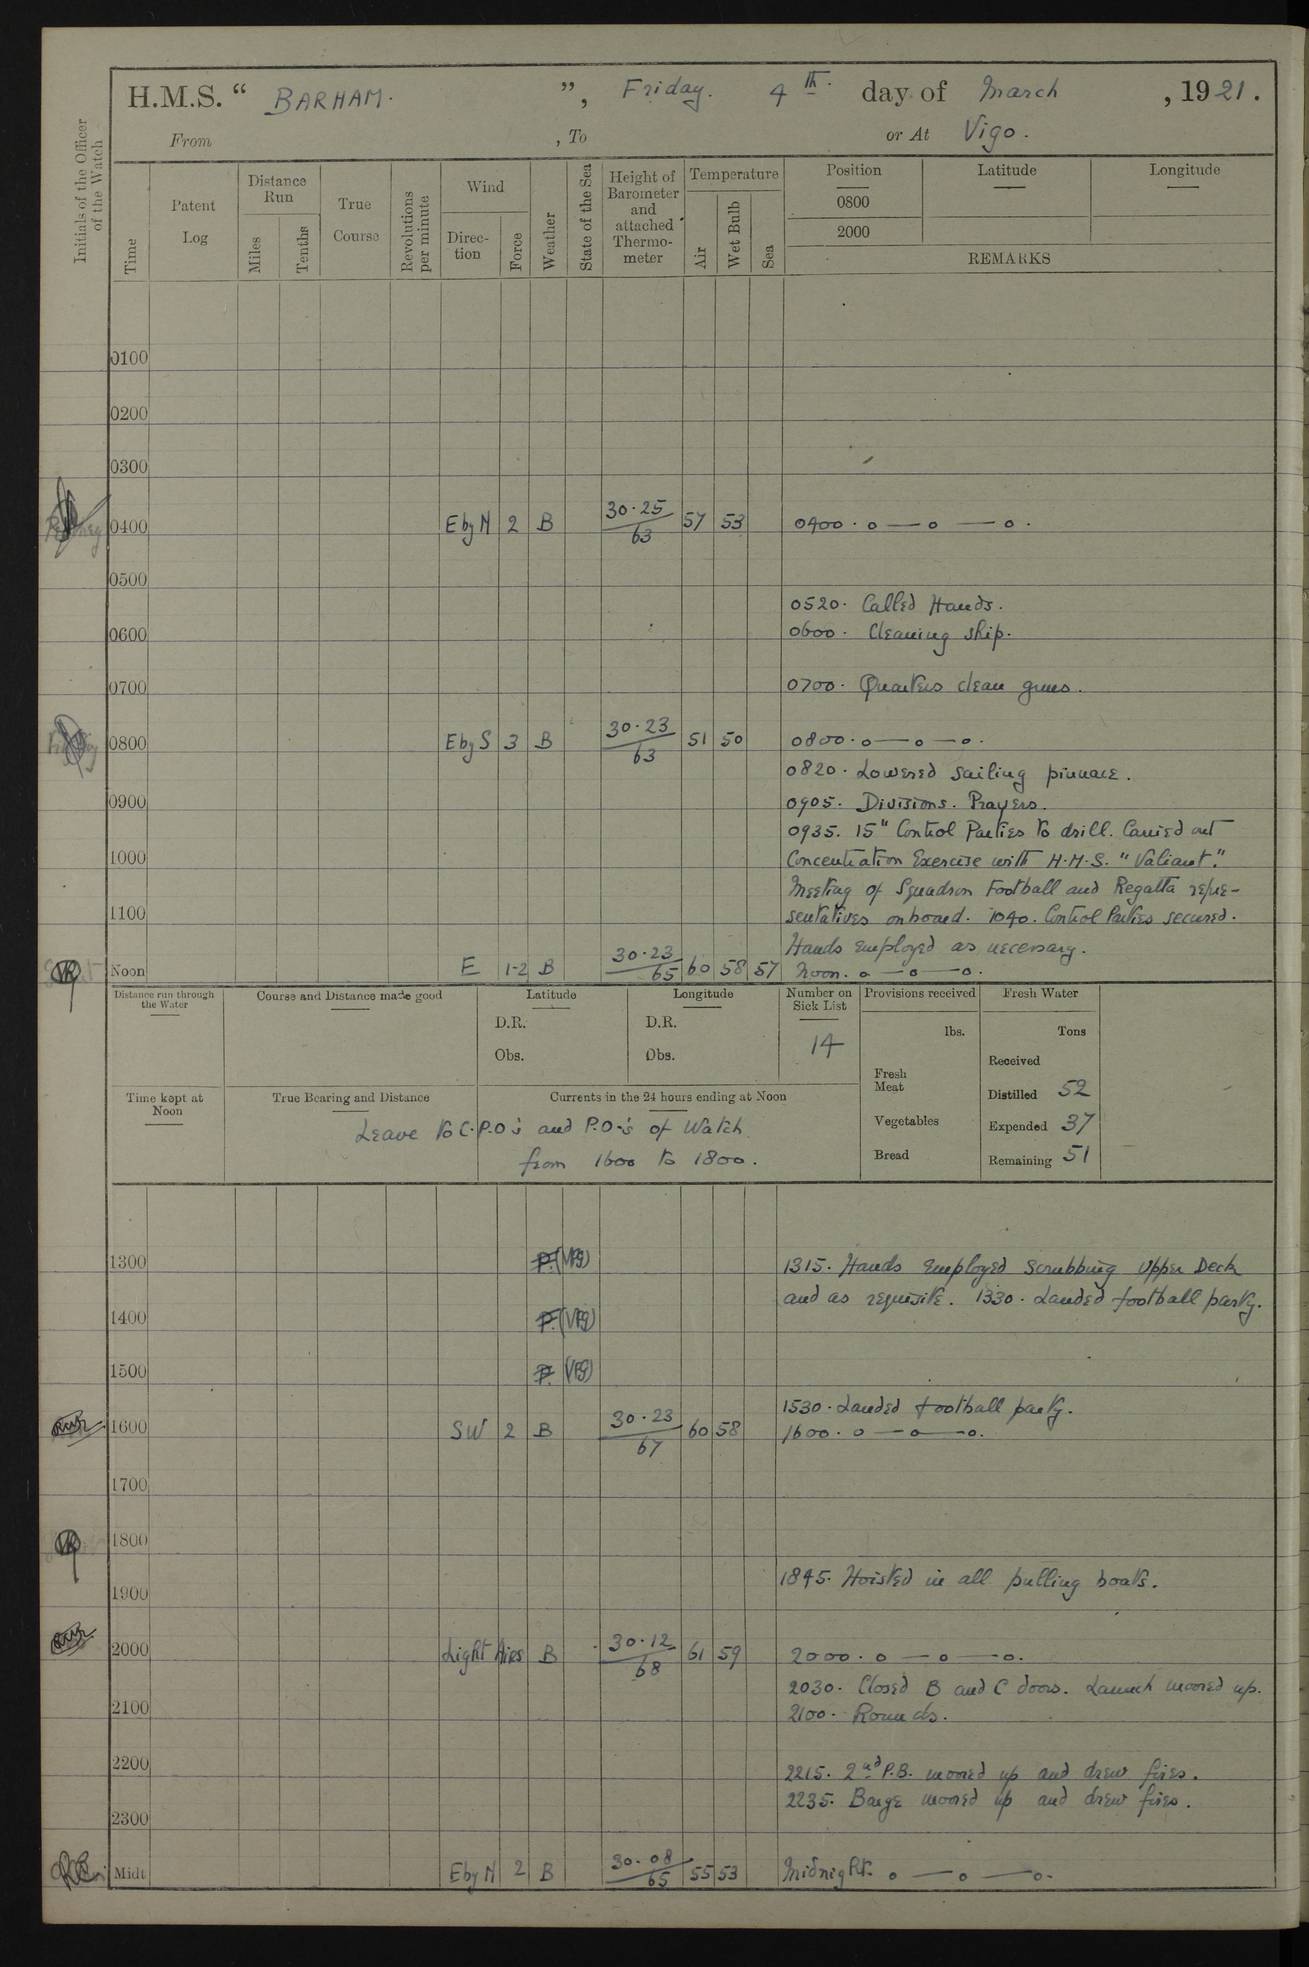 H.M.S. “ BARHAM. ”, Friday. 4th. day of March , 1921.
From , To or At Vigo.
Initials of the Officer of the Watch
Time
Patent Log
Distance Run
Miles
Tenths
True Course
Revolutions per minute
Wind
Direc-tion
Force
Weather
State of the Sea
Height of Barometer and attached Thermo-meter
Temperature
Air
Wet Bulb
Sea
Position
Latitude
Longitude
0800
2000
REMARKS
0100
0200
0300
0400 E by N 2 B 30·25/63 57 53 0400· o — o — o ·
0500
0520· Called Hands.
0600 0600· Cleaning ship.
0700 0700· Quarters clean guns.
0800 E by S 3 B 30·23/63 51 50 0800· o — o — o ·
0820· Lowered sailing pinnace.
0900 0905. Divisions. Prayers.
0935. 15" Control Parties to drill. Carried out
1000 Concentration Exercise with H.M.S. "Valiant".
Meeting of Squadron Football and Regatta repre-
1100 sentatives onboard. 1040. Control Parties secured.
Hands employed as necessary.
Noon E 1-2 B 30·23/65 60 58 57 Noon. o — o — o ·
Distance run through the Water
Course and Distance made good
Latitude
Longitude
Number on Sick List
Provisions received
Fresh Water
D.R. D.R. 14 lbs. Tons
Obs. Obs. Received
Fresh Meat
Distilled 52
Time kept at Noon
True Bearing and Distance
Currents in the 24 hours ending at Noon
Vegetables Expended 37
Leave to C.P.O's and P.O's of Watch
from 1600 to 1800.
Bread Remaining 51
1300 1315. Hands employed scrubbing Upper Deck
and as requisite. 1330. Landed football party.
1400
1500
1530. Landed football party.
1600 SW 2 B 30·23/67 60 58 1600. o — o — o.
1700
1800
1845. Hoisted in all pulling boats.
1900
2000 Light Airs B 30·12/68 61 59 2000. o — o — o.
2030. Closed B and C doors. Launch moored up.
2100 2100. Rounds.
2200 2215. 2nd P.B. moored up and drew fires.
2235. Barge moored up and drew fires.
2300
Midt E by N 2 B 30·08/65 55 53 Midnight. o — o — o.